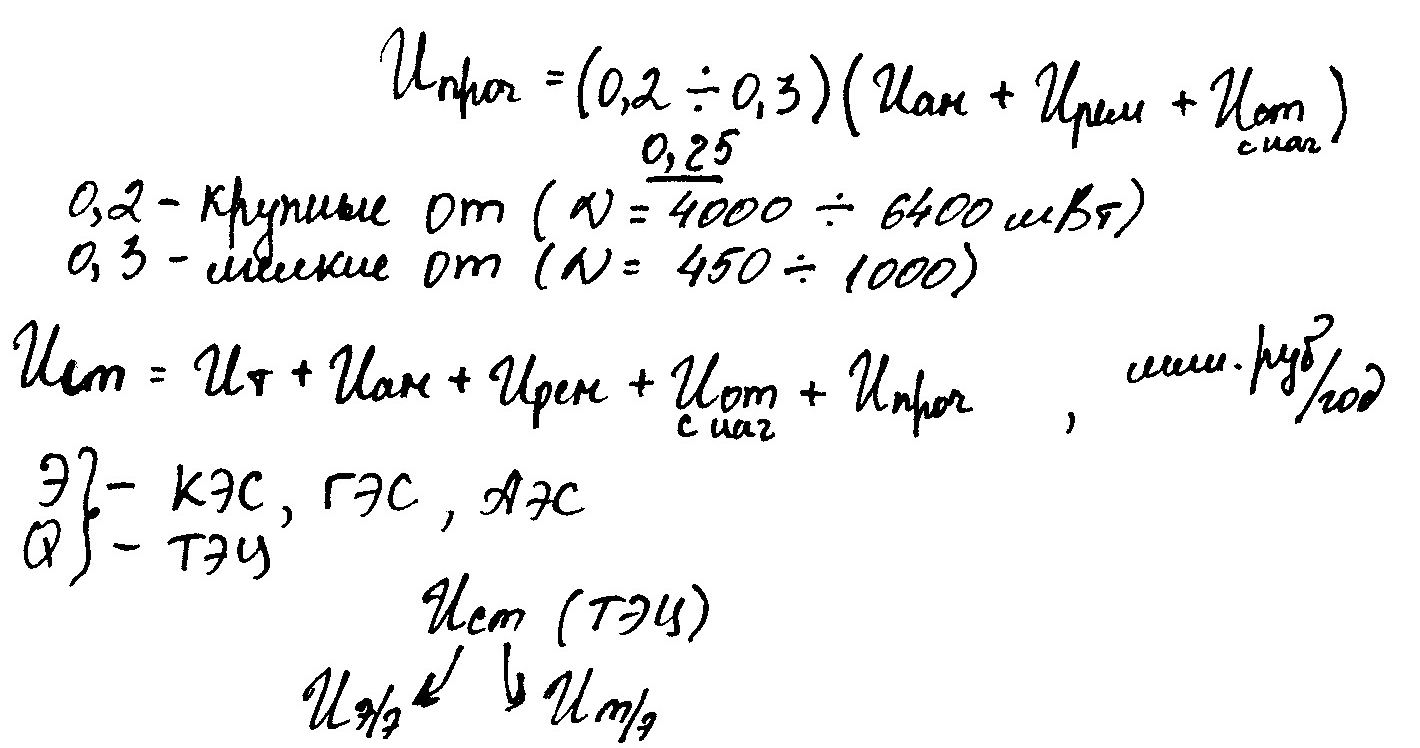 Ипроч = (0,2 ÷ 0,3)(Иам + Ирем + Иот с нач)
0,25
0,2 - крупные от (N = 4000 ÷ 6400 мВт)
0,3 - мелкие от (N = 450 ÷ 1000)
Ист = Ит + Иам + Ирем + Иот с нач + Ипроч , млн. руб/год
Э} - КЭС, ГЭС, АЭС
Q} - ТЭЦ
Ист (ТЭЦ)
Иэ/э ↙ ↓ Ит/э